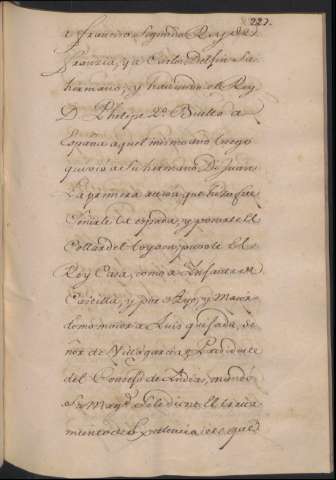 223.
a Francisco Segundo Rey de
Francia, y a Carlos Delfin su
hermano; y haviendo el Rey
D. Phelipe 2.º Buelto a
España aquel mismo año luego
que vio a su hermano D. Juan
La primera accion que hizo fue
Ceñirle la espada, y ponerle El
Collar del toyson, pusole El
Rey Casa, como a Infante de
Castilla, y por Ayo, y Maior-
domo maior a Luis quesada, Se-
ñor de Villagarcia, y Presidente
del Consejo de Indias, mandó
Su Mag.d Se le diese El trata
miento de Excelencia, es que